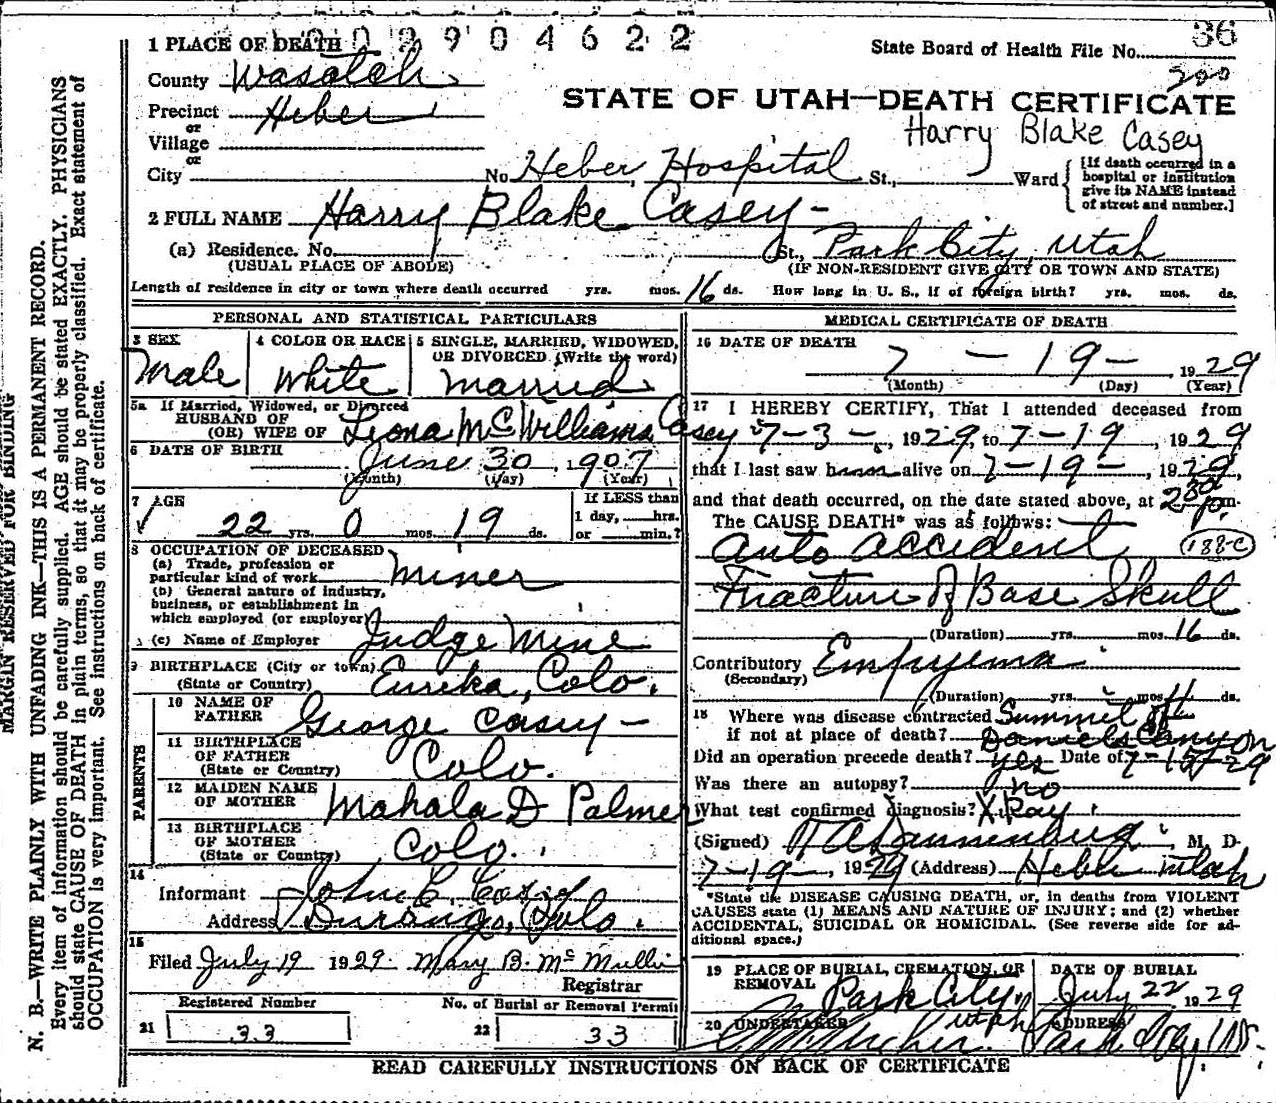 0 0 2 9 0 4 6 2 2
1 PLACE OF DEATH
State Board of Health File No. 36
County Wasatch
200
Precinct Heber
STATE OF UTAH—DEATH CERTIFICATE
or
Harry Blake Casey
Village
or
City No Heber Hospital St., Ward
[If death occurred in a
hospital or institution
give its NAME instead
of street and number.]
2 FULL NAME Harry Blake Casey
(a) Residence. No. St., Park City, Utah
(USUAL PLACE OF ABODE) (IF NON-RESIDENT GIVE CITY OR TOWN AND STATE)
Length of residence in city or town where death occurred yrs. mos. 16 ds. How long in U. S., if of foreign birth? yrs. mos. ds.
PERSONAL AND STATISTICAL PARTICULARS
3 SEX
Male
4 COLOR OR RACE
White
5 SINGLE, MARRIED, WIDOWED,
OR DIVORCED (Write the word)
Married
5a If Married, Widowed, or Divorced
HUSBAND OF
(OR) WIFE OF Leona McWilliams Casey
6 DATE OF BIRTH June 30, 1907
(Month) (Day) (Year)
7 AGE
22 yrs. 0 mos. 19 ds.
If LESS than
1 day, hrs.
or min.?
8 OCCUPATION OF DECEASED
(a) Trade, profession or
particular kind of work Miner
(b) General nature of industry,
business, or establishment in
which employed (or employer)
(c) Name of Employer Judge Mine
9 BIRTHPLACE (City or town)
(State or Country) Eureka, Colo.
PARENTS
10 NAME OF
FATHER George Casey
11 BIRTHPLACE
OF FATHER
(State or Country) Colo.
12 MAIDEN NAME
OF MOTHER Mahala D Palmer
13 BIRTHPLACE
OF MOTHER
(State or Country) Colo.
14
Informant John E. Casey
Address Durango, Colo.
15
Filed July 19 1929 Mary B. McMullin
Registrar
Registered Number
21 33
No. of Burial or Removal Permit
22 33
MEDICAL CERTIFICATE OF DEATH
16 DATE OF DEATH
7 - 19 - 1929
(Month) (Day) (Year)
17 I HEREBY CERTIFY, That I attended deceased from
7-3-, 1929, to 7-19, 1929
that I last saw him alive on 7-19-, 1929,
and that death occurred, on the date stated above, at 230 pm.
The CAUSE DEATH* was as follows:
Auto accident 188-c
Fracture of Base Skull
(Duration) yrs. mos. 16 ds.
Contributory Empyema
(Secondary)
(Duration) yrs. mos. 11 ds.
18 Where was disease contracted Summit of
if not at place of death? Daniels Canyon
Did an operation precede death? yes Date of 7-15-29
Was there an autopsy? no
What test confirmed diagnosis? X.Ray
(Signed) Dannenburg, M. D.
7-19-, 1929 (Address) Heber Utah
*State the DISEASE CAUSING DEATH, or, in deaths from VIOLENT
CAUSES state (1) MEANS AND NATURE OF INJURY; and (2) whether
ACCIDENTAL, SUICIDAL OR HOMICIDAL. (See reverse side for ad-
ditional space.)
19 PLACE OF BURIAL, CREMATION, OR
REMOVAL Park City, Utah
DATE OF BURIAL
July 22 1929
20 UNDERTAKER
ADDRESS
Park City, Ut.
READ CAREFULLY INSTRUCTIONS ON BACK OF CERTIFICATE
MARGIN RESERVED FOR BINDING
N. B.—WRITE PLAINLY WITH UNFADING INK—THIS IS A PERMANENT RECORD.
Every item of information should be carefully supplied. AGE should be stated EXACTLY. PHYSICIANS
should state CAUSE OF DEATH in plain terms, so that it may be properly classified. Exact statement of
OCCUPATION is very important. See instructions on back of certificate.